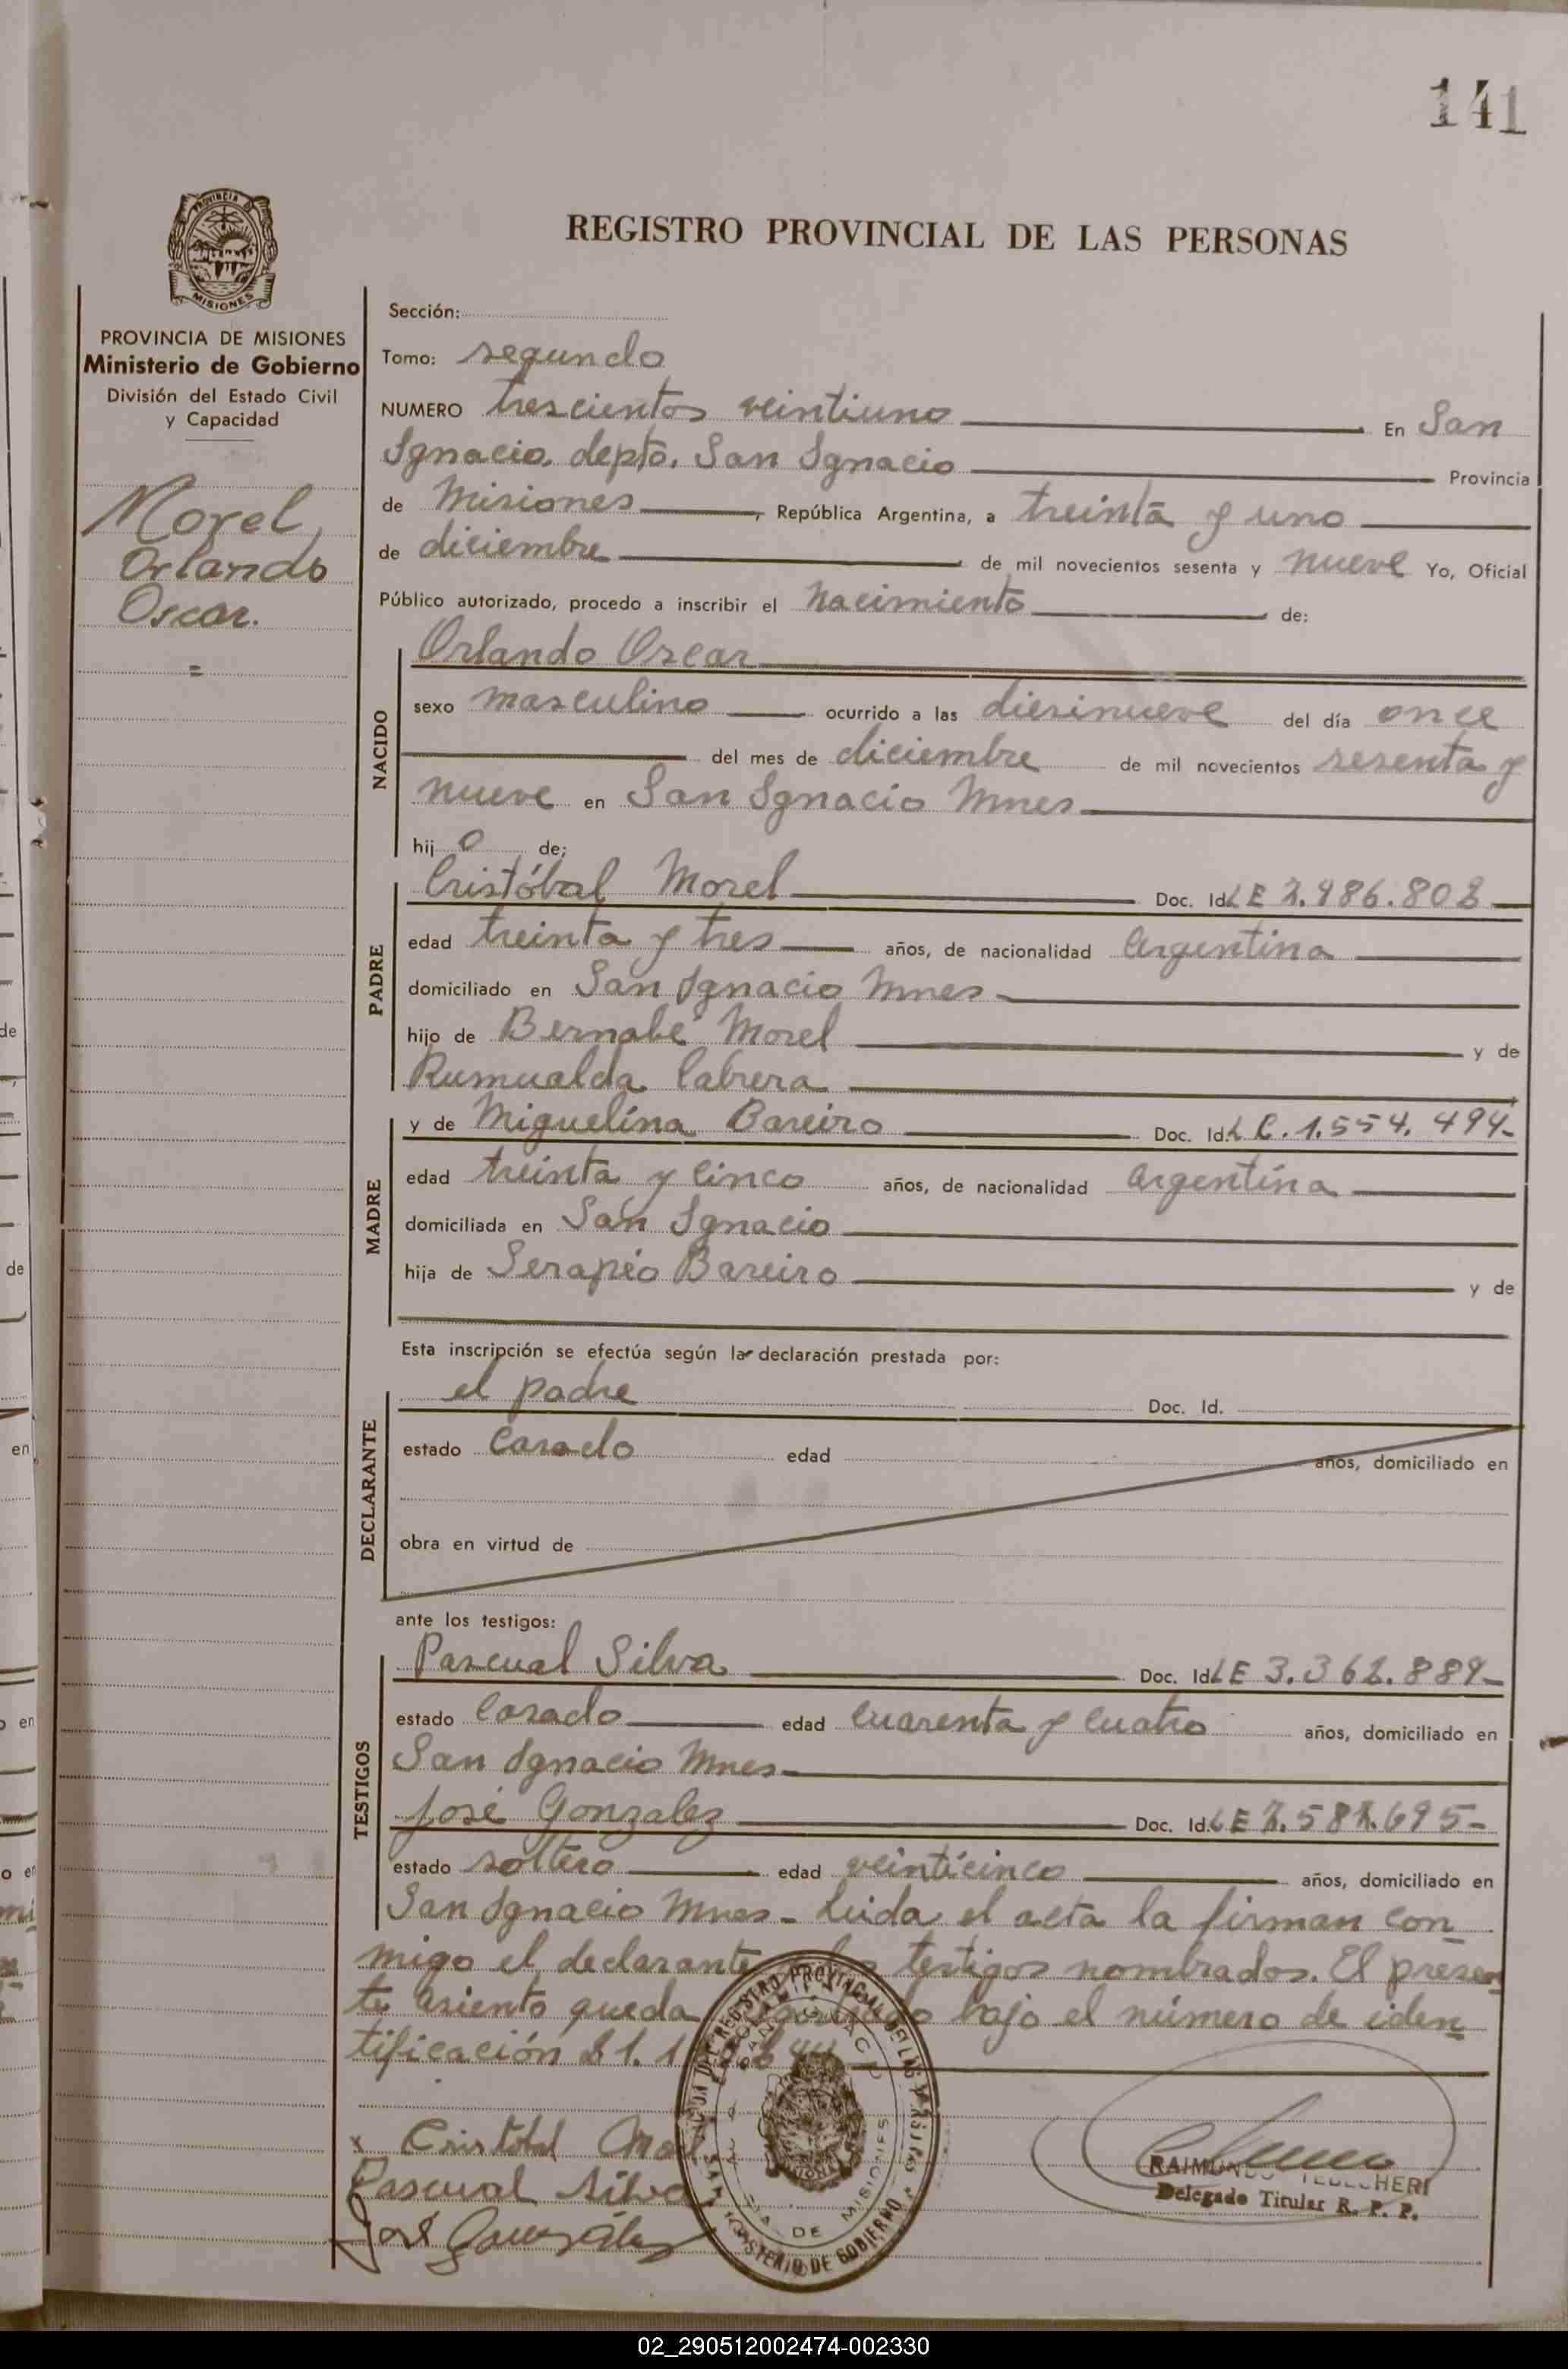 141
PROVINCIA DE
MISIONES
REGISTRO PROVINCIAL DE LAS PERSONAS
PROVINCIA DE MISIONES
Ministerio de Gobierno
División del Estado Civil
y Capacidad
Morel,
Orlando
Oscar.
=
Sección:
Tomo: segundo
NUMERO trescientos veintiuno En San
Ignacio, depto. San Ignacio Provincia
de Misiones, República Argentina, a treinta y uno
de diciembre de mil novecientos sesenta y nueve Yo, Oficial
Público autorizado, procedo a inscribir el nacimiento de:
NACIDO
Orlando Oscar
sexo masculino ocurrido a las diesinueve del día once
del mes de diciembre de mil novecientos sesenta y
nueve en San Ignacio Mnes
hij o de;
PADRE
Cristóbal Morel Doc. Id. LE
edad treinta y tres años, de nacionalidad Argentina
domiciliado en San Ignacio Mnes-
hijo de Bernabé Morel y de
Rumualda Cabrera
MADRE
y de Miguelina Bareiro Doc. Id. L C. 1.554.494-
edad treinta y cinco años, de nacionalidad argentina
domiciliada en San Ignacio
hija de Serapio Bareiro y de
Esta inscripción se efectúa según la declaración prestada por:
DECLARANTE
el padre Doc. Id.
estado casado edad años, domiciliado en
obra en virtud de
ante los testigos:
TESTIGOS
Pascual Silva Doc. Id. LE
estado casado edad cuarenta y cuatro años, domiciliado en
San Ignacio Mnes-
José Gonzalez Doc. Id. LE
estado soltero edad veinticinco años, domiciliado en
San Ignacio Mnes- Leida el acta la firman con
migo el declarante testigos nombrados. El presen
te asiento queda bajo el número de iden
tificación
x Cristobal Morel
Pascual Silva
José González
REGISTRO PROVINCIAL DE LAS PERSONAS
MINISTERIO DE GOBIERNO
DE MISIONES
RAIMUNDO
Delegado Titular R. P. P.
de
de
en
en
02_290512002474-002330